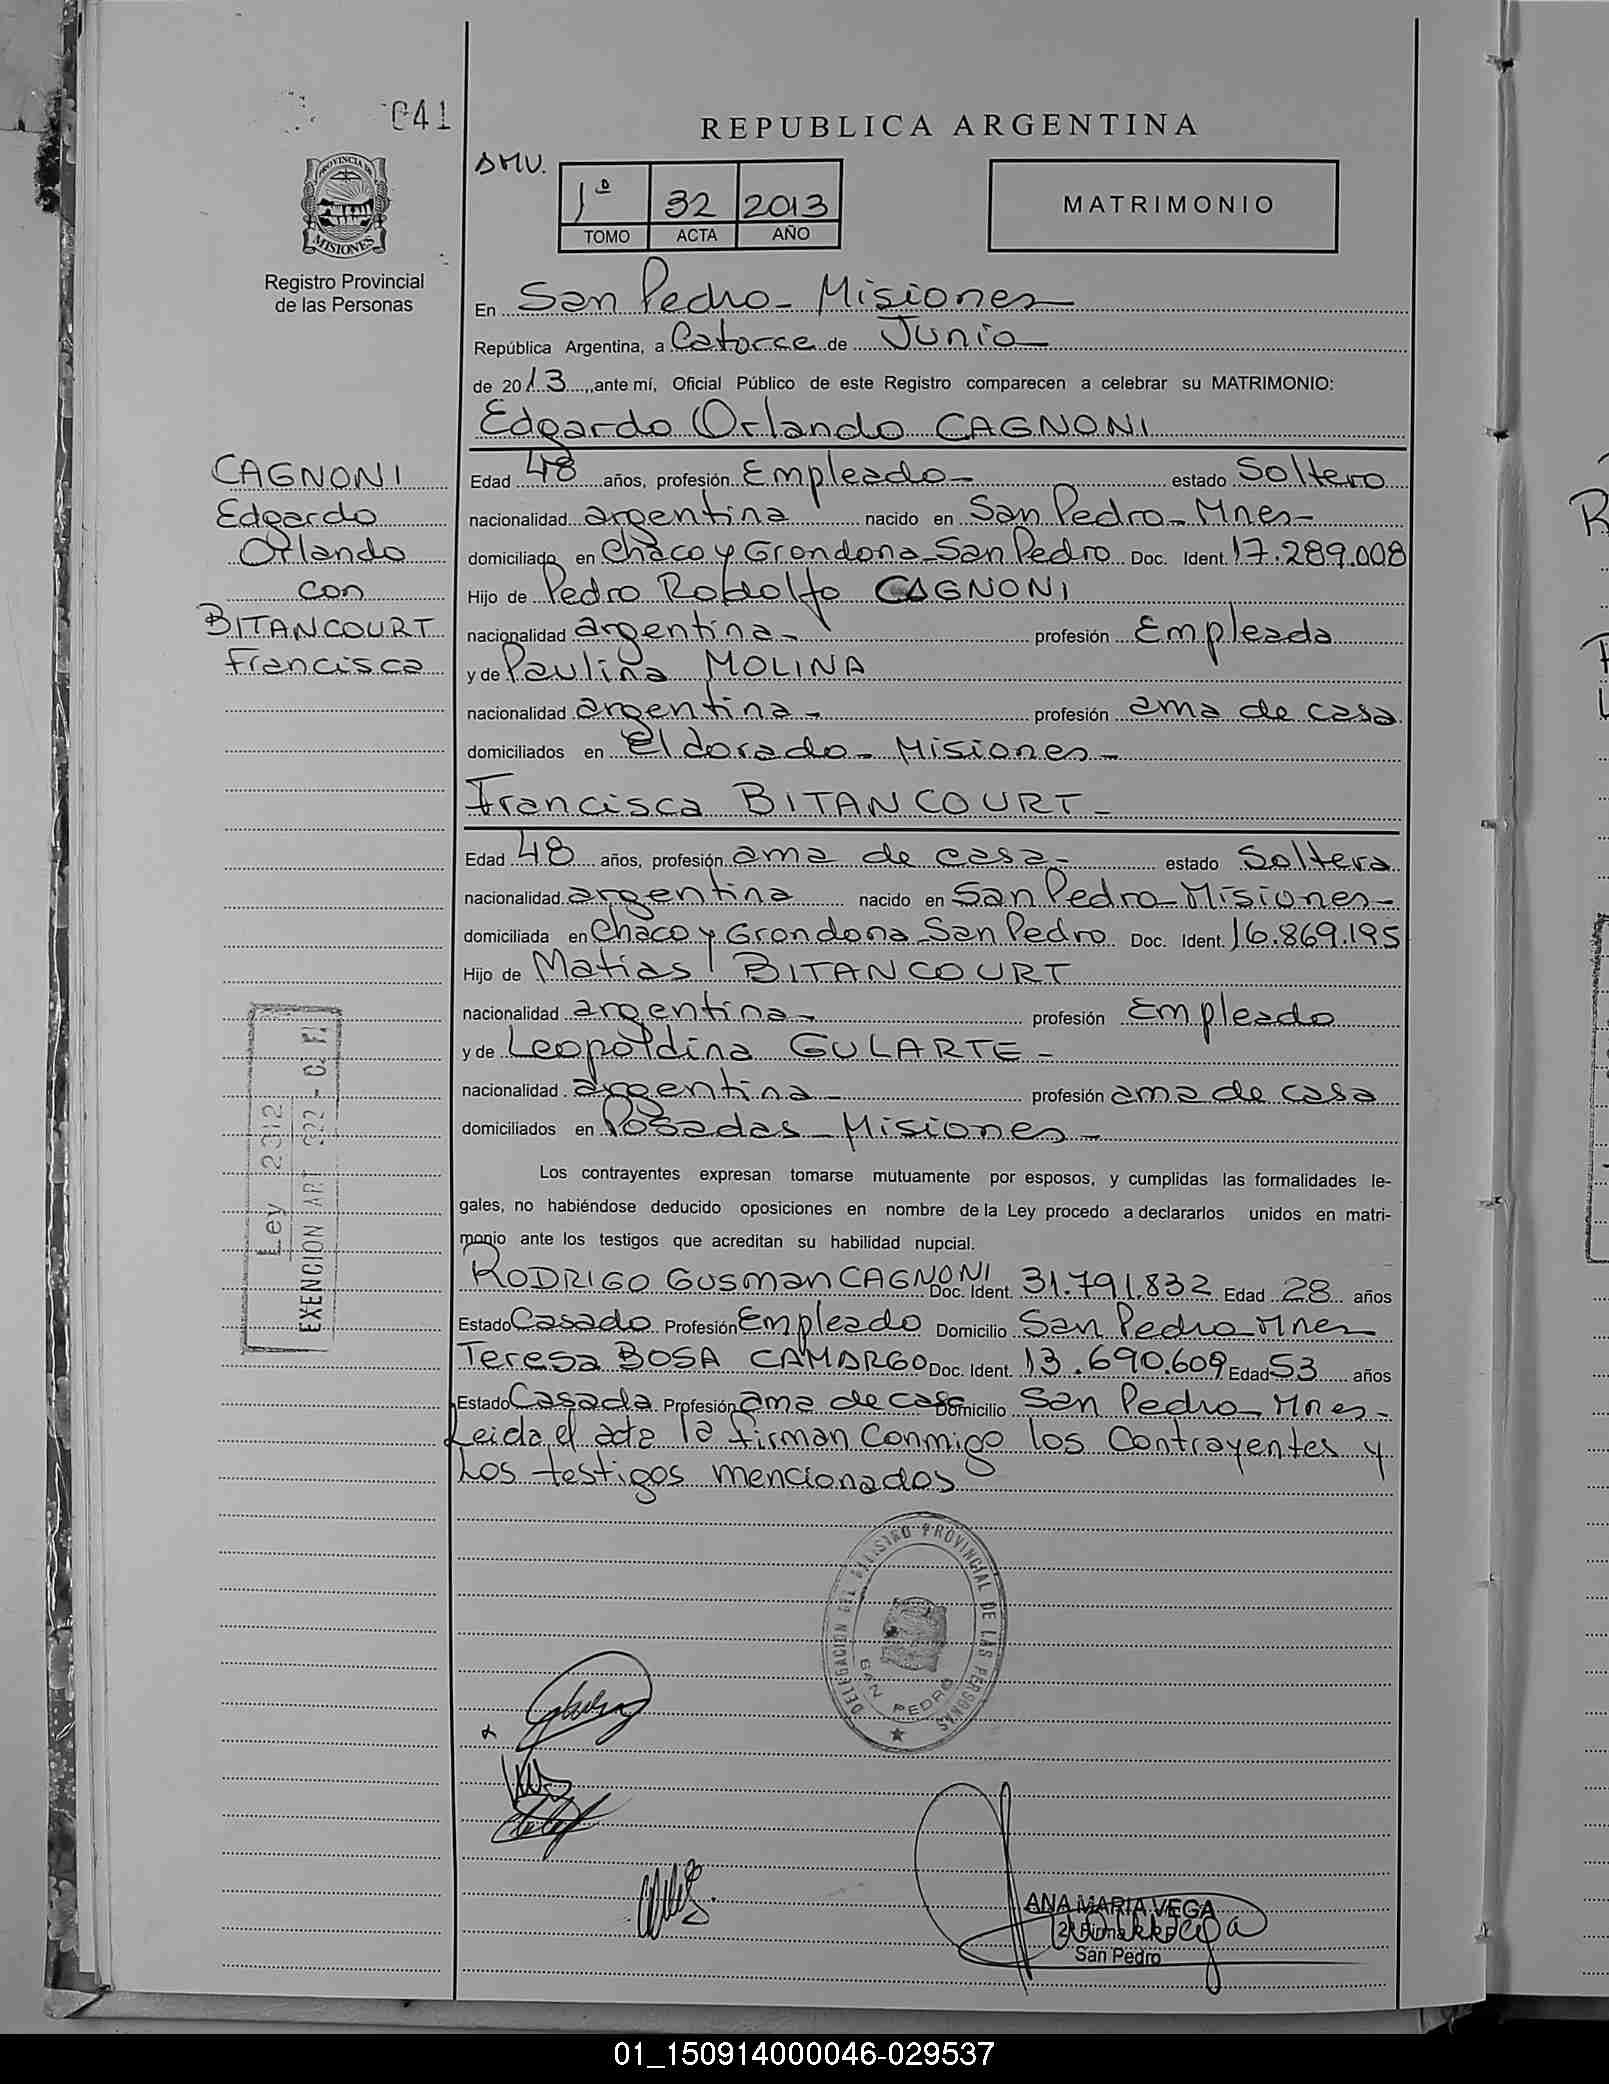 041
REPUBLICA ARGENTINA
SMU.
1º 32 2013
TOMO ACTA AÑO
MATRIMONIO
PROVINCIA DE
MISIONES
Registro Provincial
de las Personas
En San Pedro - Misiones
República Argentina, a Catorce de Junio
de 2013, ante mí, Oficial Público de este Registro comparecen a celebrar su MATRIMONIO:
Edgardo Orlando CAGNONI
CAGNONI
Edgardo
Orlando
con
BITANCOURT
Francisca
Edad 48 años, profesión Empleado - estado Soltero
nacionalidad argentina nacido en San Pedro - Mnes -
domiciliado en Chaco y Grondona - San Pedro Doc. Ident. 17.289.008
Hijo de Pedro Rodolfo CAGNONI
nacionalidad argentina - profesión Empleada
y de Paulina MOLINA
nacionalidad argentina - profesión ama de casa
domiciliados en Eldorado - Misiones -
Francisca BITANCOURT -
Edad 48 años, profesión ama de casa - estado Soltera
nacionalidad argentina nacido en San Pedro - Misiones -
domiciliada en Chaco y Grondona - San Pedro Doc. Ident. 16.869.195
Hijo de Matias BITANCOURT
nacionalidad argentina - profesión Empleado
y de Leopoldina GULARTE -
nacionalidad argentina - profesión ama de casa
domiciliados en Posadas - Misiones -
Ley 2312
EXENCION ART 322 - C. F.
Los contrayentes expresan tomarse mutuamente por esposos, y cumplidas las formalidades le-
gales, no habiéndose deducido oposiciones en nombre de la Ley procedo a declararlos unidos en matri-
monio ante los testigos que acreditan su habilidad nupcial.
RODRIGO GUSMAN CAGNONI Doc. Ident. 31.791.832 Edad 28 años
Estado Casado Profesión Empleado Domicilio San Pedro - Mnes
Teresa BOSA CAMARGO Doc. Ident. 13.690.609 Edad 53 años
Estado Casada Profesión ama de casa Domicilio San Pedro - Mnes -
Leida el acta la firman conmigo los contrayentes y
Los testigos mencionados
DELEGACION DEL REGISTRO PROVINCIAL DE LAS PERSONAS
SAN PEDRO
ANA MARIA VEGA
2ª Firma R.P.P.
San Pedro
01_150914000046-029537